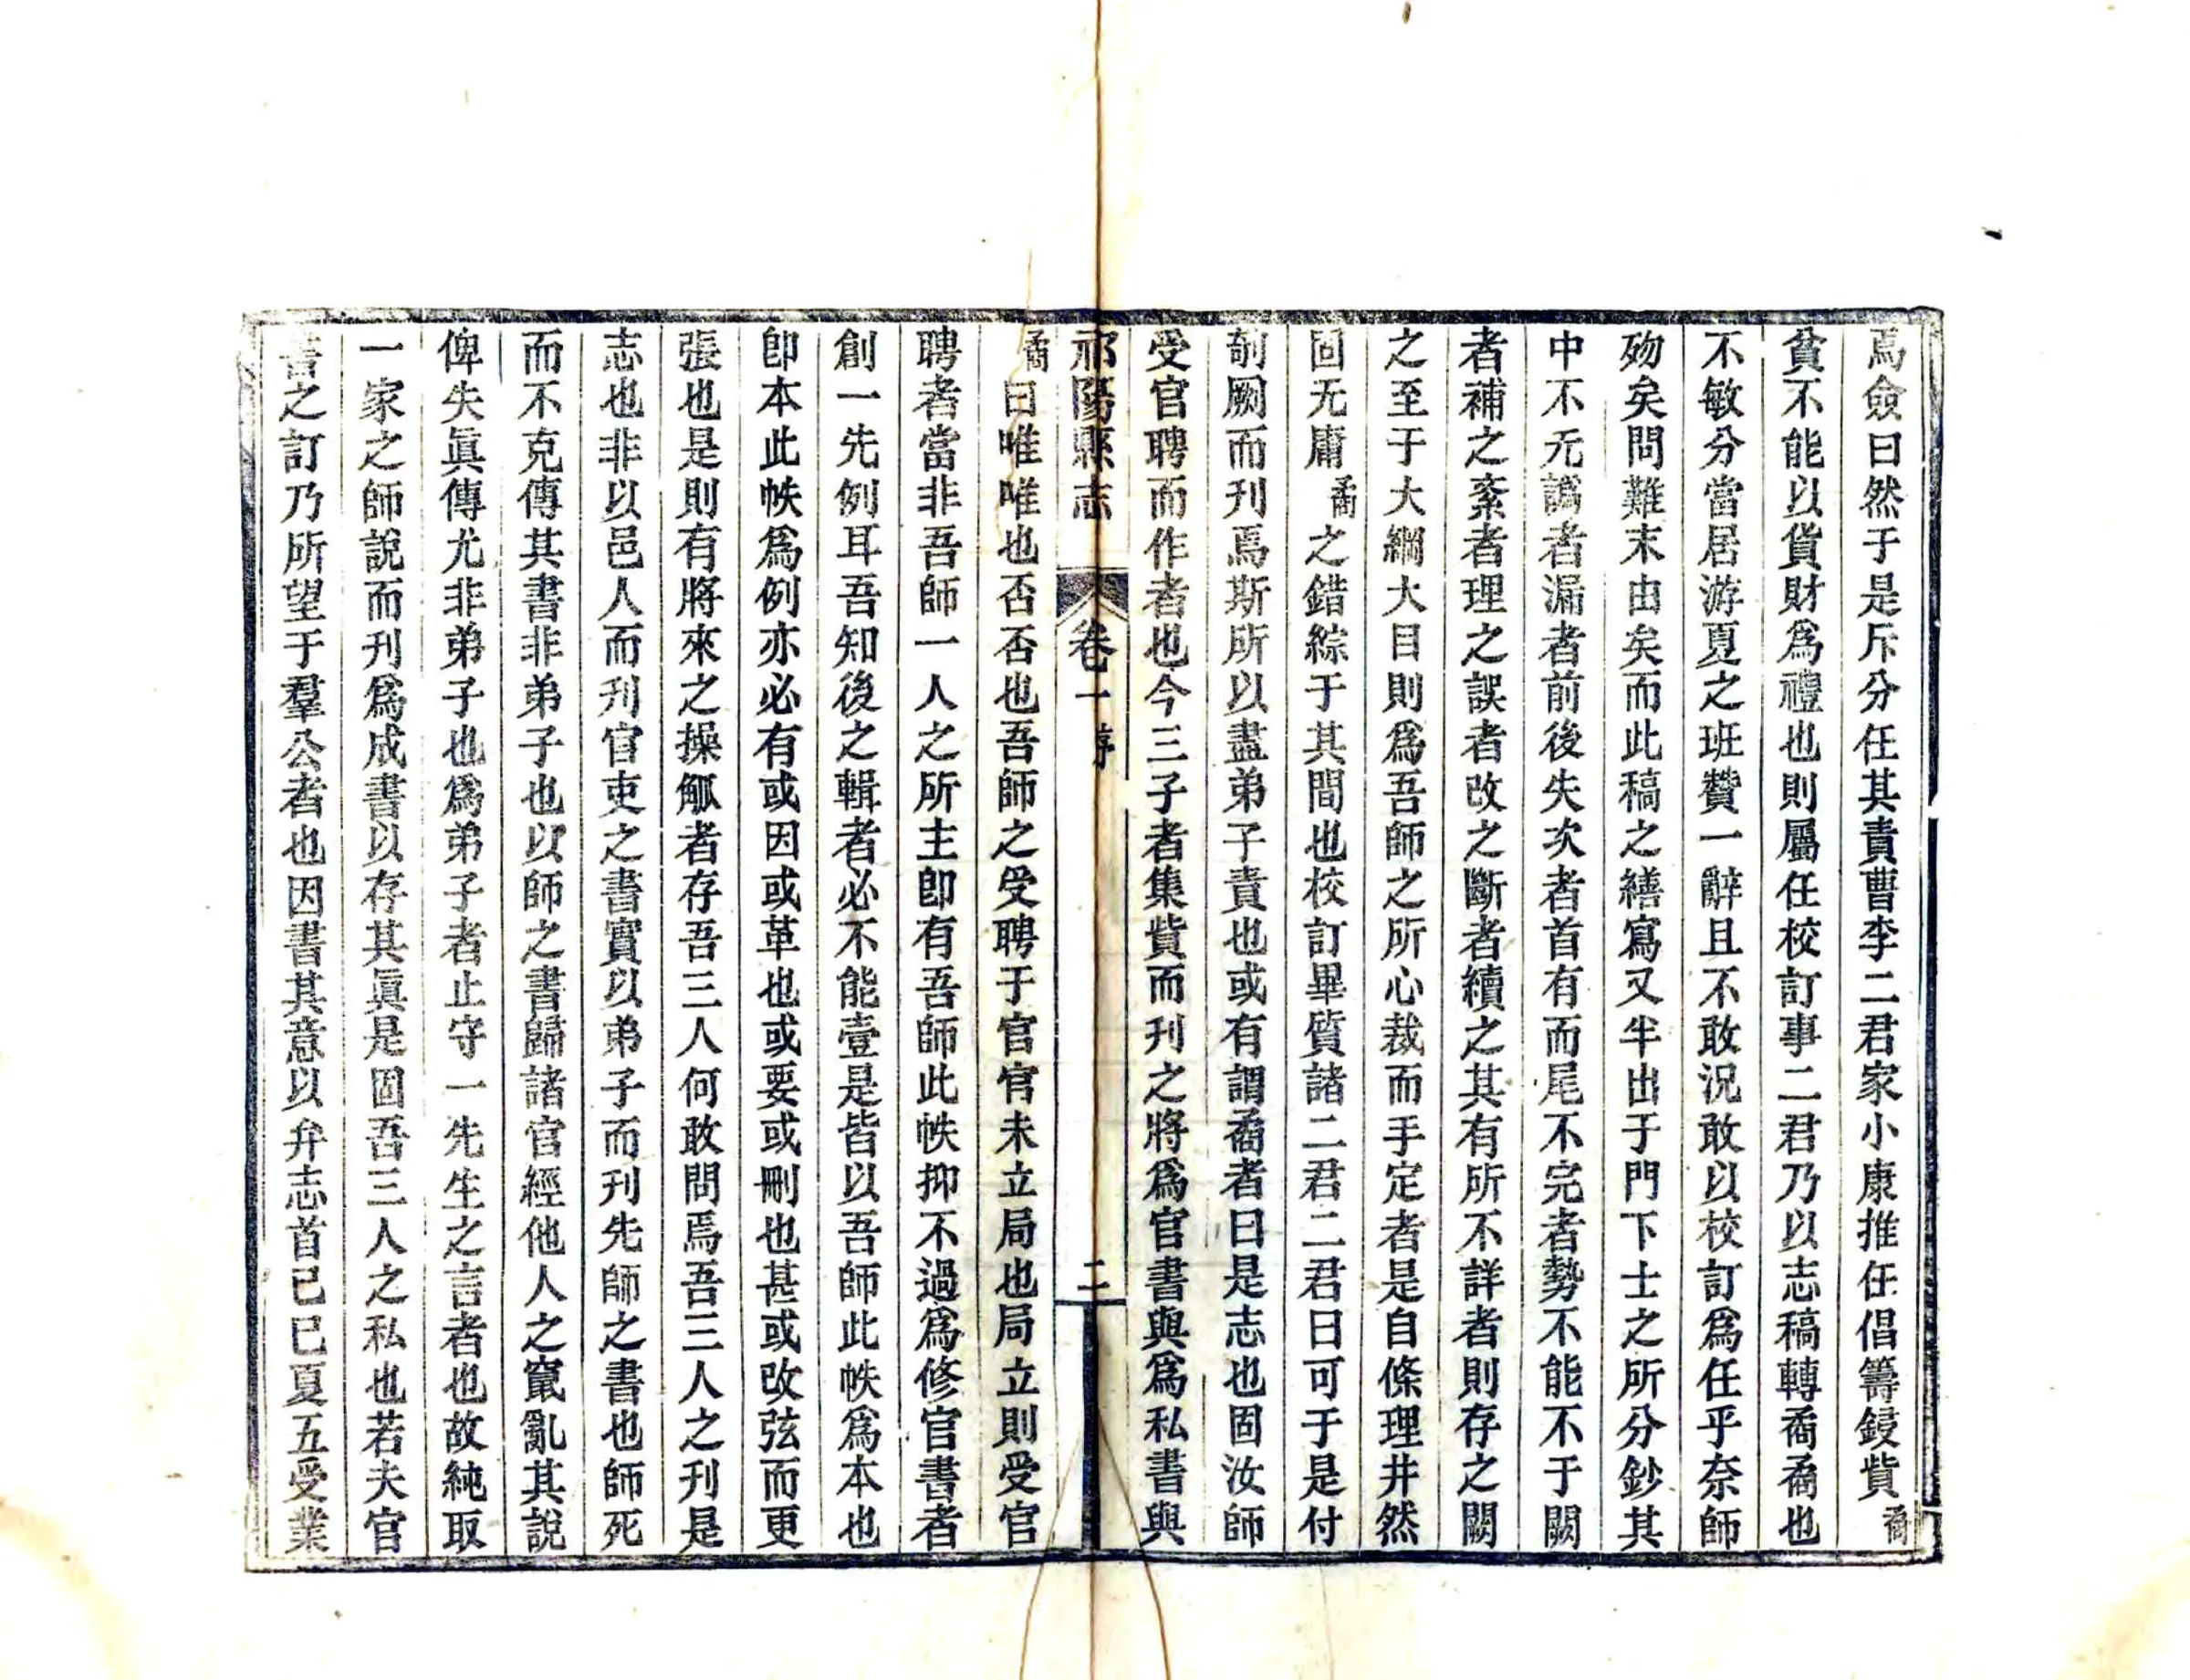 焉僉曰然于是斥分任其責曹李二君家小康推任倡籌鋟貲矞
貧不能以貨財爲禮也則屬任校訂事二君乃以志稿轉矞矞也
不敏分當居游夏之班贊一辭且不敢況敢以校訂爲任乎奈師
歾矣問難末由矣而此稿之繕寫又半出于門下士之所分鈔其
中不无譌者漏者前後失次者首有而尾不完者勢不能不于闕
者補之紊者理之誤者改之斷者續之其有所不詳者則存之闕
之至于大綱大目則爲吾師之所心裁而手定者是自條理井然
固无庸矞之錯綜于其間也校訂畢質諸二君二君曰可于是付
剞劂而刊焉斯所以盡弟子責也或有謂矞者曰是志也固汝師
受官聘而作者也今三子者集貲而刊之將爲官書與爲私書與
祁陽縣志 卷一 序 二
矞曰唯唯也否否也吾師之受聘于官官未立局也局立則受官
聘者當非吾師一人之所主卽有吾師此帙抑不過爲修官書者
創一先例耳吾知後之輯者必不能壹是皆以吾師此帙爲本也
卽本此帙爲例亦必有或因或革也或要或刪也甚或改弦而更
張也是則有將來之操觚者存吾三人何敢問焉吾三人之刊是
志也非以邑人而刊官吏之書實以弟子而刊先師之書也師死
而不克傳其書非弟子也以師之書歸諸官經他人之竄亂其說
俾失眞傳尤非弟子也爲弟子者止守一先生之言者也故純取
一家之師說而刊爲成書以存其眞是固吾三人之私也若夫官
書之訂乃所望于羣公者也因書其意以弁志首己巳夏五受業